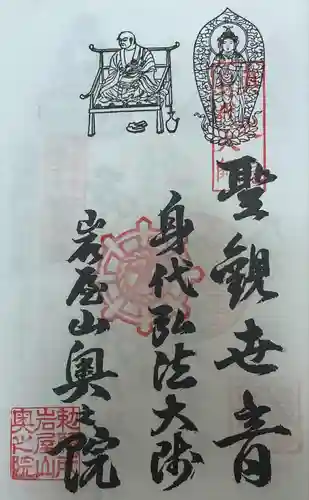 聖觀世音
身代弘法大師
岩屋山奥之院
勅所
岩屋山
奥之院